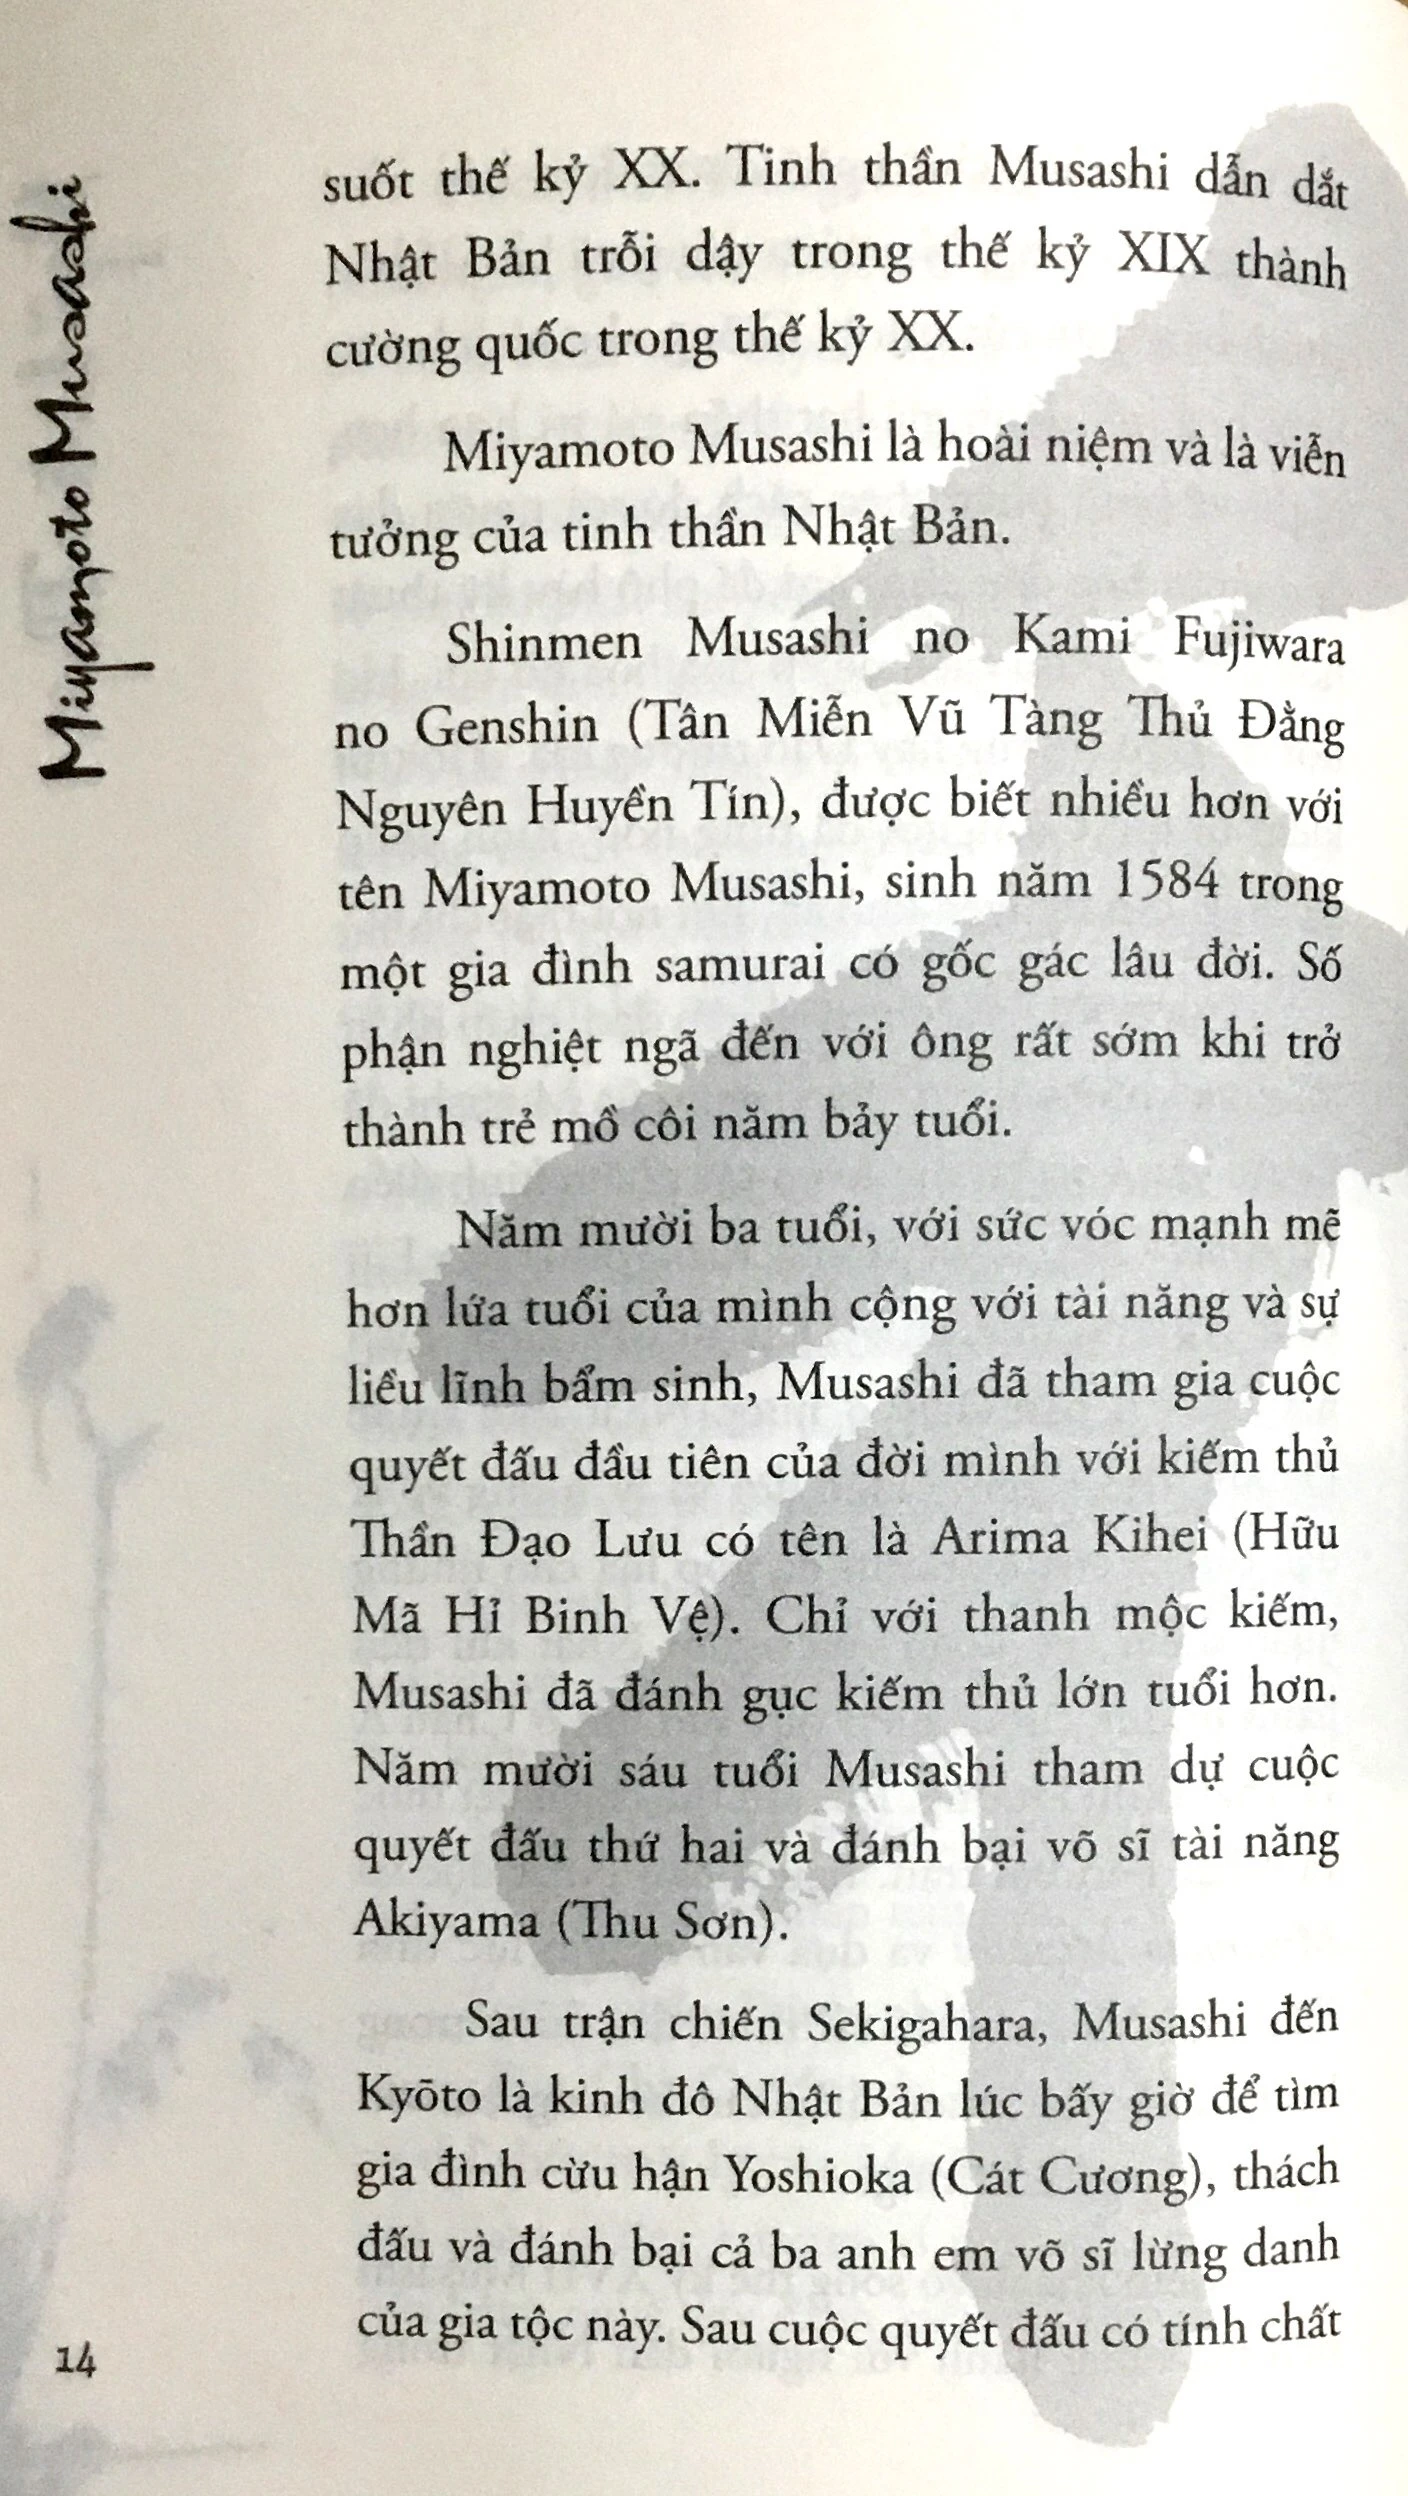 Miyamoto Musashi
suốt thế kỷ XX. Tinh thần Musashi dẫn dắt
Nhật Bản trỗi dậy trong thế kỷ XIX thành
cường quốc trong thế kỷ XX.
Miyamoto Musashi là hoài niệm và là viễn
tưởng của tinh thần Nhật Bản.
Shinmen Musashi no Kami Fujiwara
no Genshin (Tân Miễn Vũ Tàng Thủ Đằng
Nguyên Huyền Tín), được biết nhiều hơn với
tên Miyamoto Musashi, sinh năm 1584 trong
một gia đình samurai có gốc gác lâu đời. Số
phận nghiệt ngã đến với ông rất sớm khi trở
thành trẻ mồ côi năm bảy tuổi.
Năm mười ba tuổi, với sức vóc mạnh mẽ
hơn lứa tuổi của mình cộng với tài năng và sự
liều lĩnh bẩm sinh, Musashi đã tham gia cuộc
quyết đấu đầu tiên của đời mình với kiếm thủ
Thần Đạo Lưu có tên là Arima Kihei (Hữu
Mã Hỉ Binh Vệ). Chỉ với thanh mộc kiếm,
Musashi đã đánh gục kiếm thủ lớn tuổi hơn.
Năm mười sáu tuổi Musashi tham dự cuộc
quyết đấu thứ hai và đánh bại võ sĩ tài năng
Akiyama (Thu Sơn).
Sau trận chiến Sekigahara, Musashi đến
Kyōto là kinh đô Nhật Bản lúc bấy giờ để tìm
gia đình cừu hận Yoshioka (Cát Cương), thách
đấu và đánh bại cả ba anh em võ sĩ lừng danh
của gia tộc này. Sau cuộc quyết đấu có tính chất
14